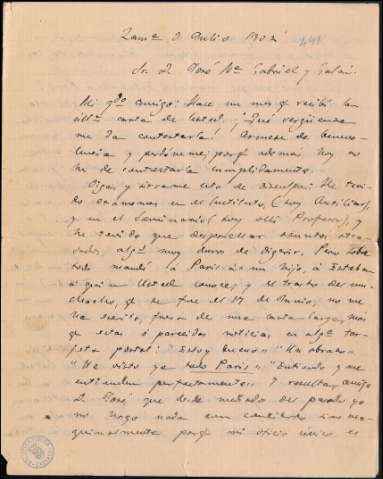 Zamª 8 Julio 1902
Sr. D. José Mª Gabriel y Galán.
Mi qdo amigo: Hace un mes q. recibí la
últª carta de Usted. ¡Qué vergüenza
me da contestarla! Ármese de benevo-
lencia y perdóneme; porq. además hoy no
he de contestarla cumplidamente.
Oiga, y sírvame esto de disculpa: He teni-
do exámenes en el Instituto, (soy Auxiliar),
y en el Seminario (soy allí Profesor), y
he tenido que despachar asuntos atra-
sados, algº muy duros de digerir. Pero sobre
todo mandé á París á un hijo, á Esteban
á quien Usted conoce; y el trasto del mu-
chacho, q. se fue el 17 de Junio, no me
ha escrito, fuera de una carta larga, más
q. estas ó parecidas noticias en algª tar-
jeta postal: "Estoy bueno." "Un abrazo."
"He visto ya todo París." Entiendo que
entienden perfectamente. Y resulta, amigo
D. José que desde mediado del pasado yo
no hago nada con cuidado sino ma-
quinalmente porq. mi oficio único es